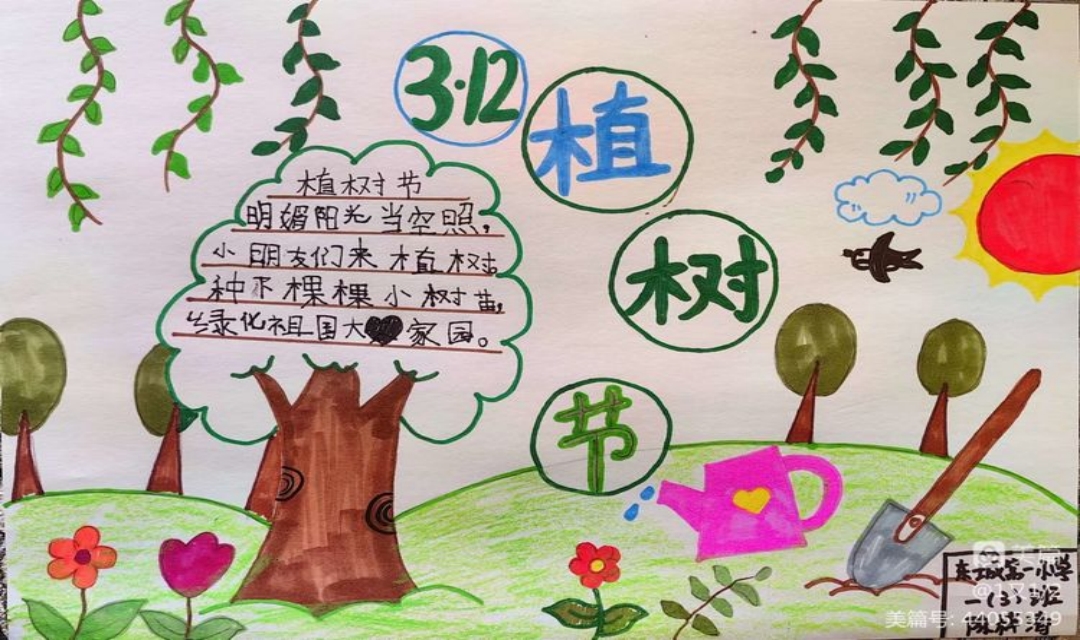 3·12
植
树
节
植树节
明媚阳光当空照，
小朋友们来植树。
种下棵棵小树苗，
绿化祖国大家园。
第一小学
一(3)班
美篇
美篇号: 44055349